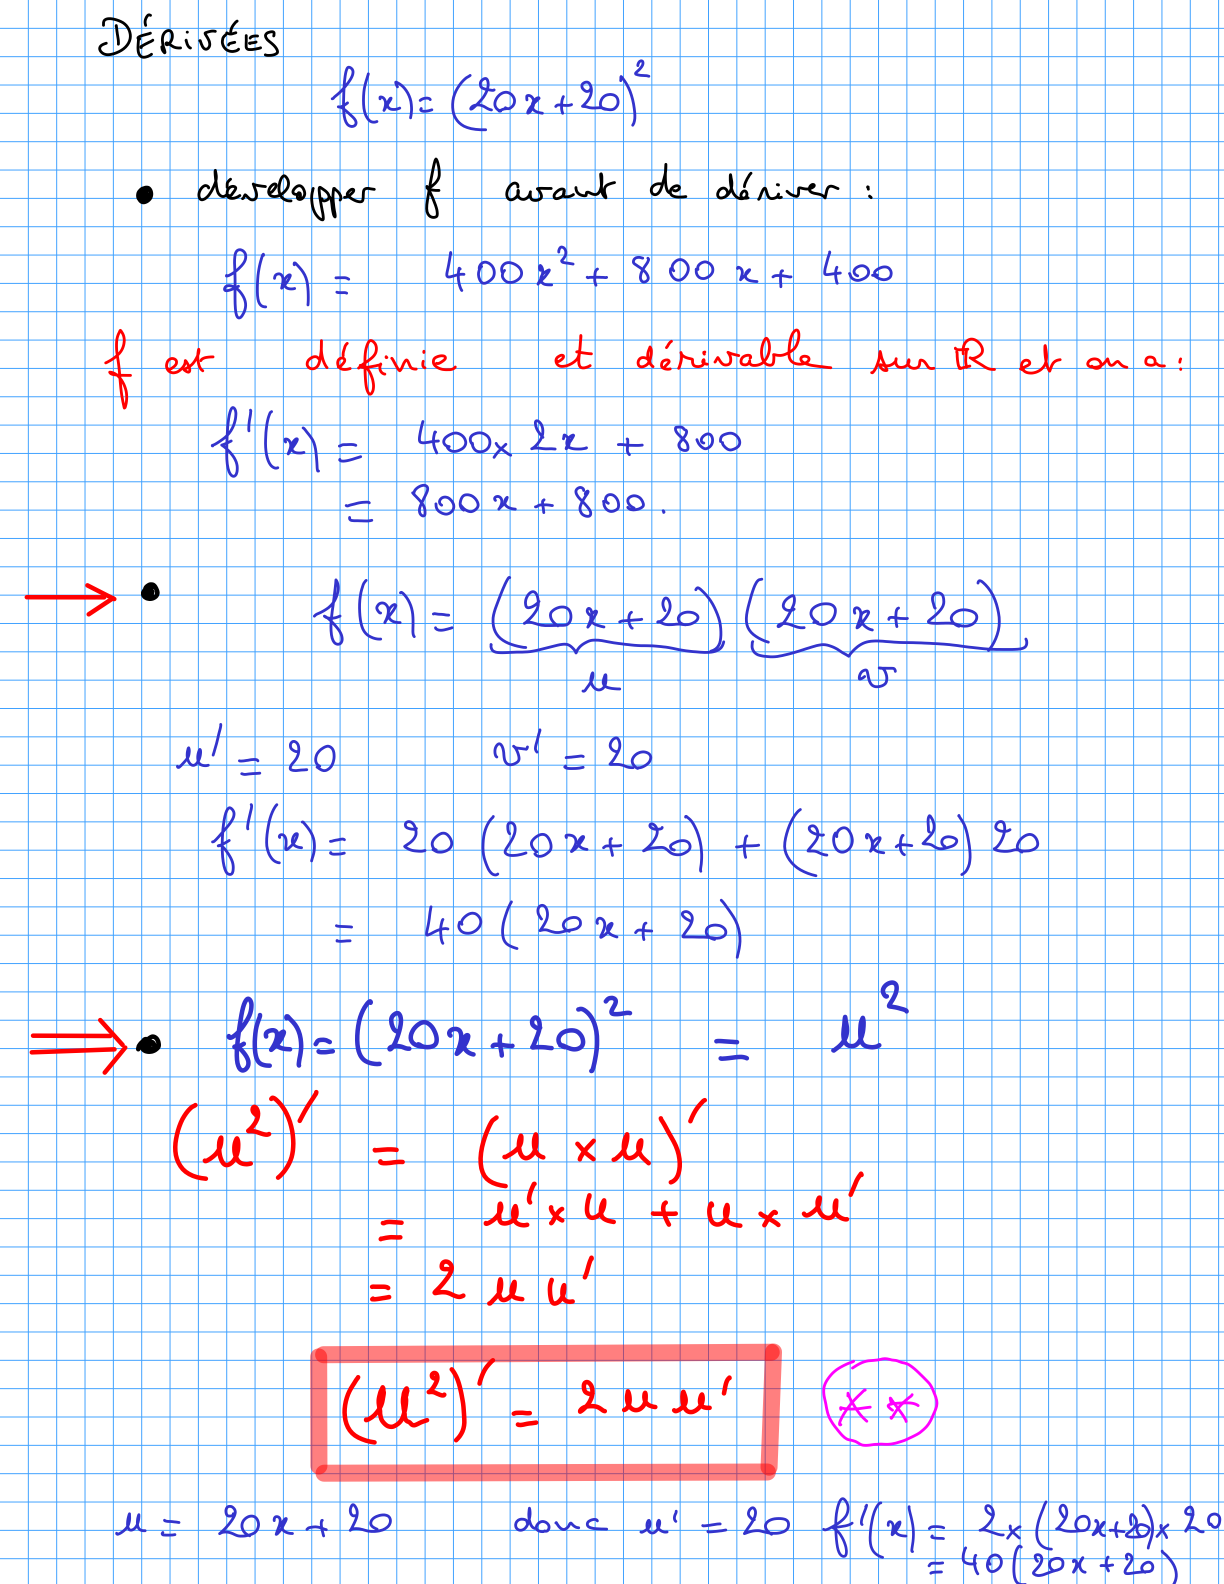 DÉRIVÉES
f(x) = (20x + 20)²
• développer f avant de dériver :
f(x) = 400x² + 800x + 400
f est définie et dérivable sur ℝ et on a :
f'(x) = 400 × 2x + 800
= 800x + 800.
→ • f(x) = (20x + 20) (20x + 20)
u v
u' = 20 v' = 20
f'(x) = 20 (20x + 20) + (20x + 20) 20
= 40 (20x + 20)
⇒ • f(x) = (20x + 20)² = u²
(u²)' = (u × u)'
= u' × u + u × u'
= 2 u u'
(u²)' = 2 u u' **
u = 20x + 20 donc u' = 20 f'(x) = 2 × (20x + 20) × 20
= 40 (20x + 20)